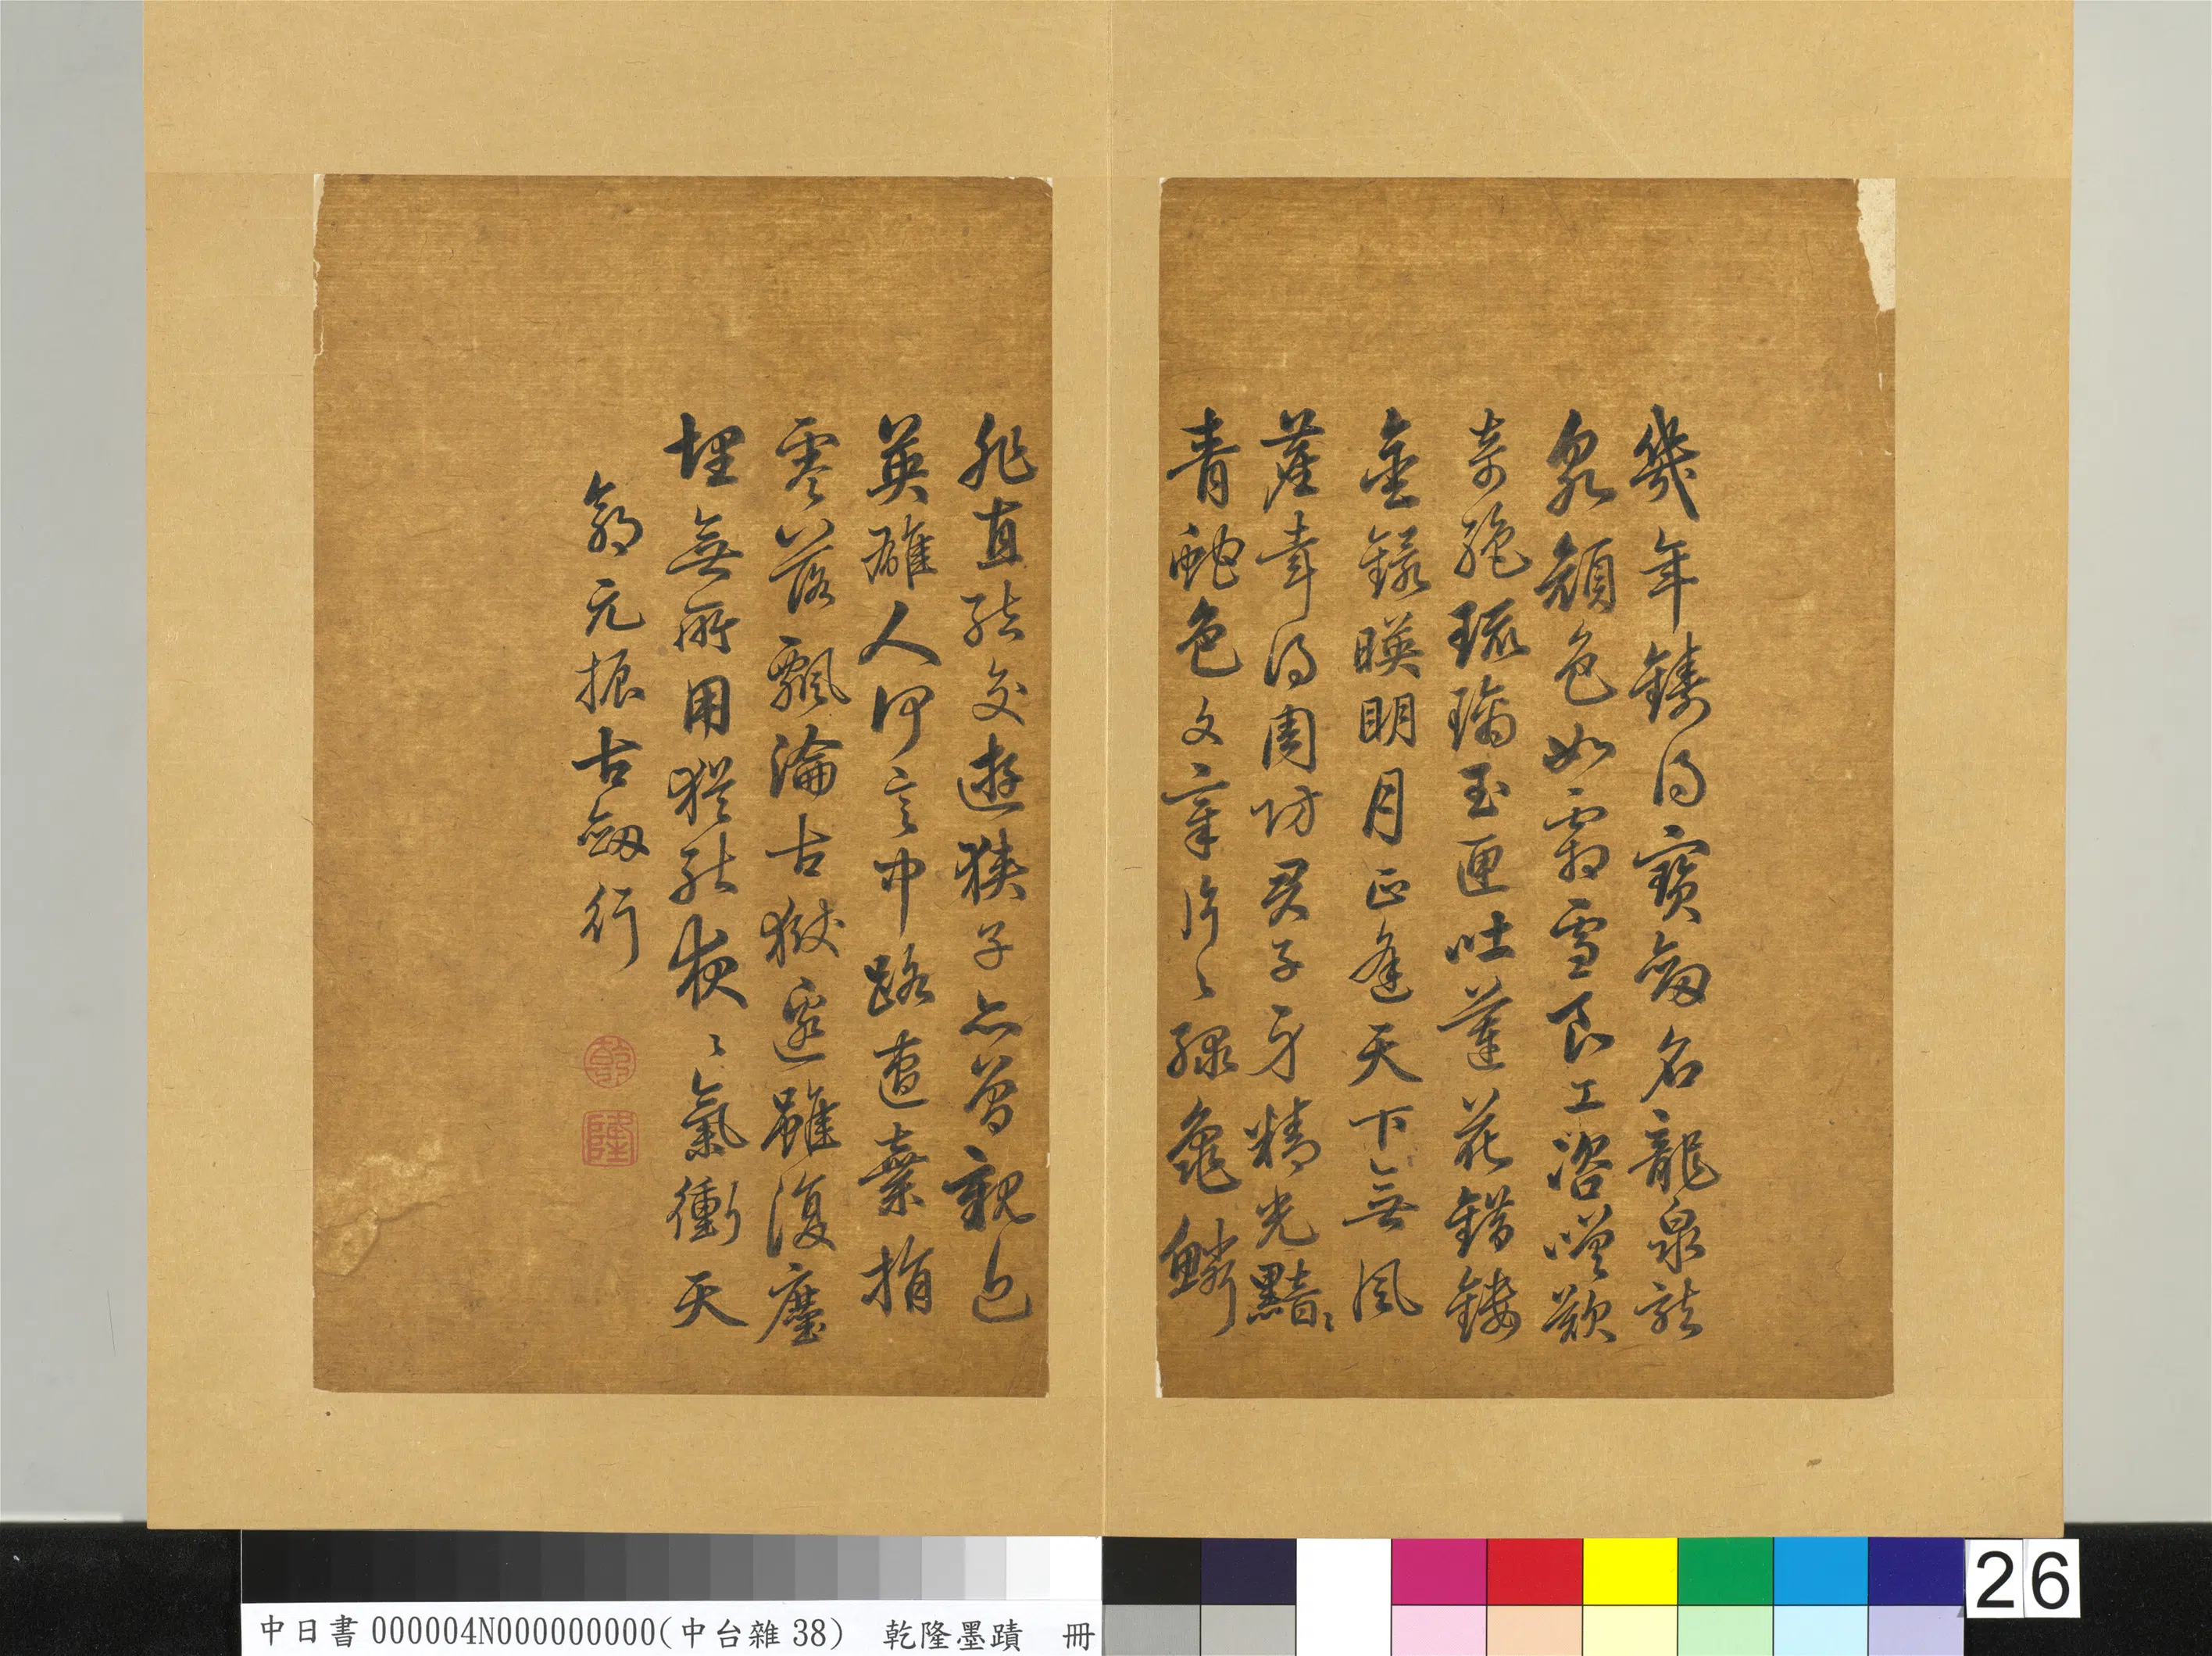 幾年鑄得寶劒名龍泉龍
泉顏色如霜雪良工咨嗟歎
奇絶琉璃玉匣吐蓮花錯鏤
金鐶暎明月正逢天下無風
塵幸得周防君子身精光黯〻
青虵色文章片〻緑龜鱗
非直結交遊俠子亦曾親近
英雄人何言中路遭棄捐
零落飄淪古獄邊雖復塵
埋無所用猶能夜〻氣衝天
郭元振古劒行
乾
隆
中日書000004N000000000(中台雜38) 乾隆墨蹟 冊
26